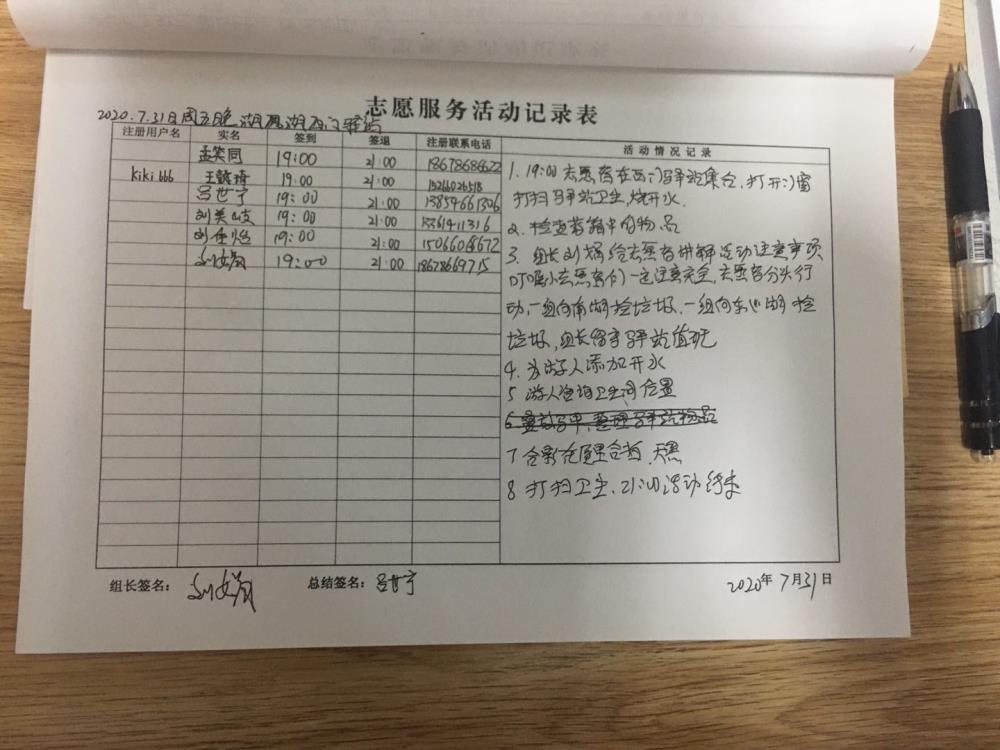 志愿服务活动记录表
2020.7.31日周五晚 湖
注册用户名 实名 签到 签退 注册联系电话 活动情况记录
孟笑同 19:00 21:00 18678686622
kiki bbb 王 19:00 21:00 15266026518
吕世宁 19:00 21:00 13854661306
刘美岐 19:00 21:00 13361411316
刘 19:00 21:00 15066068672
刘 19:00 21:00 18678669715
1. 19:00志愿者在西门驿站集合,打开门窗
打扫驿站卫生,烧开水.
2. 检查药箱中的物品
3. 组长刘 给志愿者讲解活动注意事项
叮嘱小志愿者们一定注意安全,志愿者分头行
动,一组向南湖捡垃圾,一组向东 湖捡
垃圾,组长留守驿站值班
4. 为游人添加开水
5 游人咨询卫生间位置
6 整理驿站物品
7 合影
8 打扫卫生,21:00活动结束
组长签名: 刘 总结签名: 吕世宁 2020年7月31日